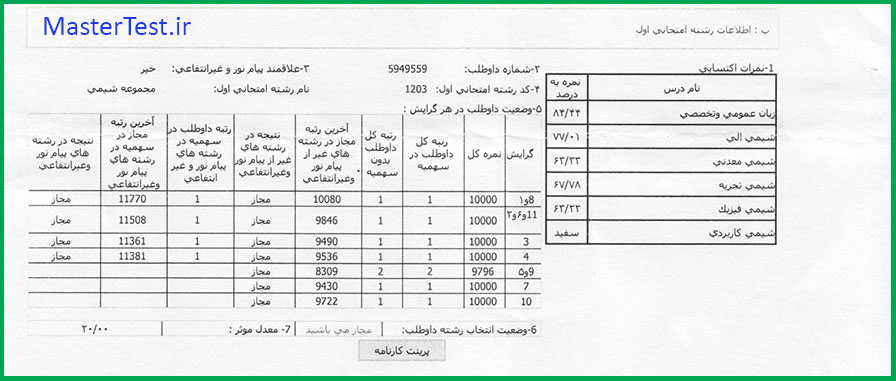 MasterTest.ir
ب : اطلاعات رشته امتحاني اول
1-نمرات اکتسابي
۲-شماره داوطلب: 5949559
۳-علاقمند پیام نور و غیرانتفاعي: خیر
۴-کد رشته امتحاني اول: 1203
نام رشته امتحاني اول: مجموعه شیمي
۵-وضعیت داوطلب در هر گرایش :
نام درس نمره به درصد
زبان عمومي وتخصصي ۸۴/۴۴
شیمي الي ۷۷/۰۱
شیمي معدني ۶۳/۳۳
شیمي تجزیه ۶۷/۷۸
شیمي فیزیك ۶۳/۳۳
شیمي کاربردي سفید
گرایش نمره کل رتبه کل داوطلب در سهمیه رتبه کل داوطلب بدون سهمیه آخرین رتبه مجاز در رشته هاي غیر از پیام نور وغیرانتفاعي نتیجه در رشته هاي غیر از پیام نور وغیرانتفاعي رتبه داوطلب در سهمیه در رشته هاي پیام نور و غیر انتفاعي آخرین رتبه مجاز در سهمیه در رشته هاي پیام نور وغیرانتفاعي نتیجه در رشته هاي پیام نور وغیرانتفاعي
۱و8 10000 1 1 10080 مجاز 1 11770 مجاز
۲و۶و11 10000 1 1 9846 مجاز 1 11508 مجاز
3 10000 1 1 9490 مجاز 1 11361 مجاز
4 10000 1 1 9536 مجاز 1 11381 مجاز
۵و9 9796 2 2 8309 مجاز
7 10000 1 1 9430 مجاز
10 10000 1 1 9722 مجاز
6-وضعیت انتخاب رشته داوطلب: مجاز مي باشید
7- معدل موثر : ۲۰/۰۰
پرینت کارنامه